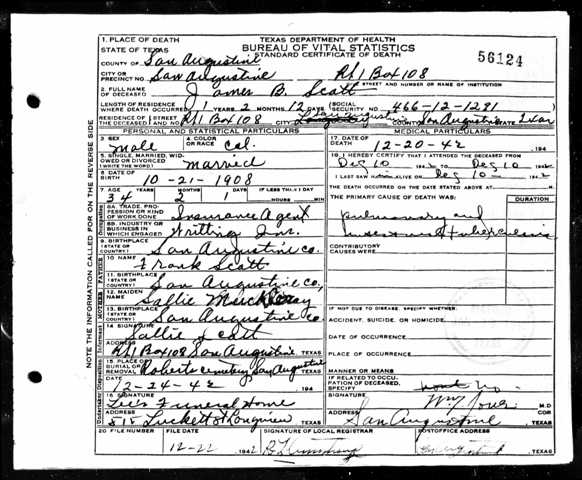 TEXAS DEPARTMENT OF HEALTH
BUREAU OF VITAL STATISTICS
STANDARD CERTIFICATE OF DEATH
56124
1. PLACE OF DEATH
STATE OF TEXAS
COUNTY OF San Augustine
CITY OR PRECINCT NO. San Augustine Rt 1 Box 108
STREET AND NUMBER OR NAME OF INSTITUTION
2. FULL NAME OF DECEASED James B. Scott
LENGTH OF RESIDENCE WHERE DEATH OCCURRED YEARS 2 MONTHS 12 DAYS SOCIAL SECURITY NO. 466-12-1281
RESIDENCE OF THE DECEASED STREET AND NO. Rt 1 Box 108 CITY San Augustine San Augustine
PERSONAL AND STATISTICAL PARTICULARS
MEDICAL PARTICULARS
3. SEX male 4. COLOR OR RACE Col.
17. DATE OF DEATH 12-20-42 194
5. SINGLE, MARRIED, WIDOWED OR DIVORCED (WRITE THE WORD) married
18. I HEREBY CERTIFY THAT I ATTENDED THE DECEASED FROM Dec 10 1942 TO Dec 10 1942
I LAST SAW ALIVE ON Dec 10 1942
6. DATE OF BIRTH 10-21-1908
THE DEATH OCCURRED ON THE DATE STATED ABOVE AT M.
7. AGE YEARS 34 MONTHS 2 DAYS 1 IF LESS THAN 1 DAY HOURS MIN
THE PRIMARY CAUSE OF DEATH WAS: DURATION
8A. TRADE, PROFESSION OR KIND OF WORK DONE Insurance Agent
pulmonary and
8B. INDUSTRY OR BUSINESS IN WHICH ENGAGED Writting Ins.
tuberculosis
9. BIRTHPLACE (STATE OR COUNTRY) San Augustine Co.
CONTRIBUTORY CAUSES WERE
10. NAME Frank Scott
11. BIRTHPLACE (STATE OR COUNTRY) San Augustine Co,
12. MAIDEN NAME Sallie
13. BIRTHPLACE (STATE OR COUNTRY) San Augustine Co
IF NOT DUE TO DISEASE, SPECIFY WHETHER:
ACCIDENT, SUICIDE, OR HOMICIDE
14. SIGNATURE Sallie Scott
DATE OF OCCURRENCE
ADDRESS Rt 1 Box 108 San Augustine TEXAS
PLACE OF OCCURRENCE
15. PLACE OF BURIAL OR REMOVAL Roberts cemetery San Augustine TEXAS
MANNER OR MEANS
DATE 12-24-42 194
IF RELATED TO OCCUPATION OF DECEASED, SPECIFY
16. SIGNATURE Lee's Funeral Home
SIGNATURE M.D
ADDRESS 515 Luckett St Longview TEXAS
ADDRESS San Augustine TEXAS
20. FILE NUMBER FILE DATE 12-22 1942 SIGNATURE OF LOCAL REGISTRAR POSTOFFICE ADDRESS
NOTE THE INFORMATION CALLED FOR ON THE REVERSE SIDE